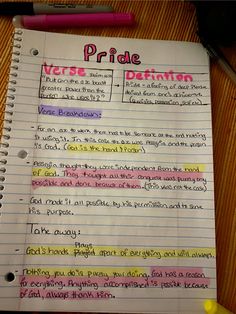 Pride
Verse Isaiah 10:15
"But can the axe boast
greater power than the
person who uses it?"
Definition
Pride - a feeling of deep pleasure
derived from one's achievements
Verse Breakdown:
- For an axe to work there had to be someone at the end making
it. In this case the axe was Assyria and the person
is God. (God is the hand/Person)
- Assyria thought they were independent from the hand
of God. They thought all this conquer was purely
possible and done because of them. (This was not the case)
- God made it all possible by his permission and to serve
his purpose.
Take away:
- God's hands plays apart of everything and will always.
- nothing you do is purely you doing. God has a reason
for everything. Anything accomplished is possible because
of God, always thank him.